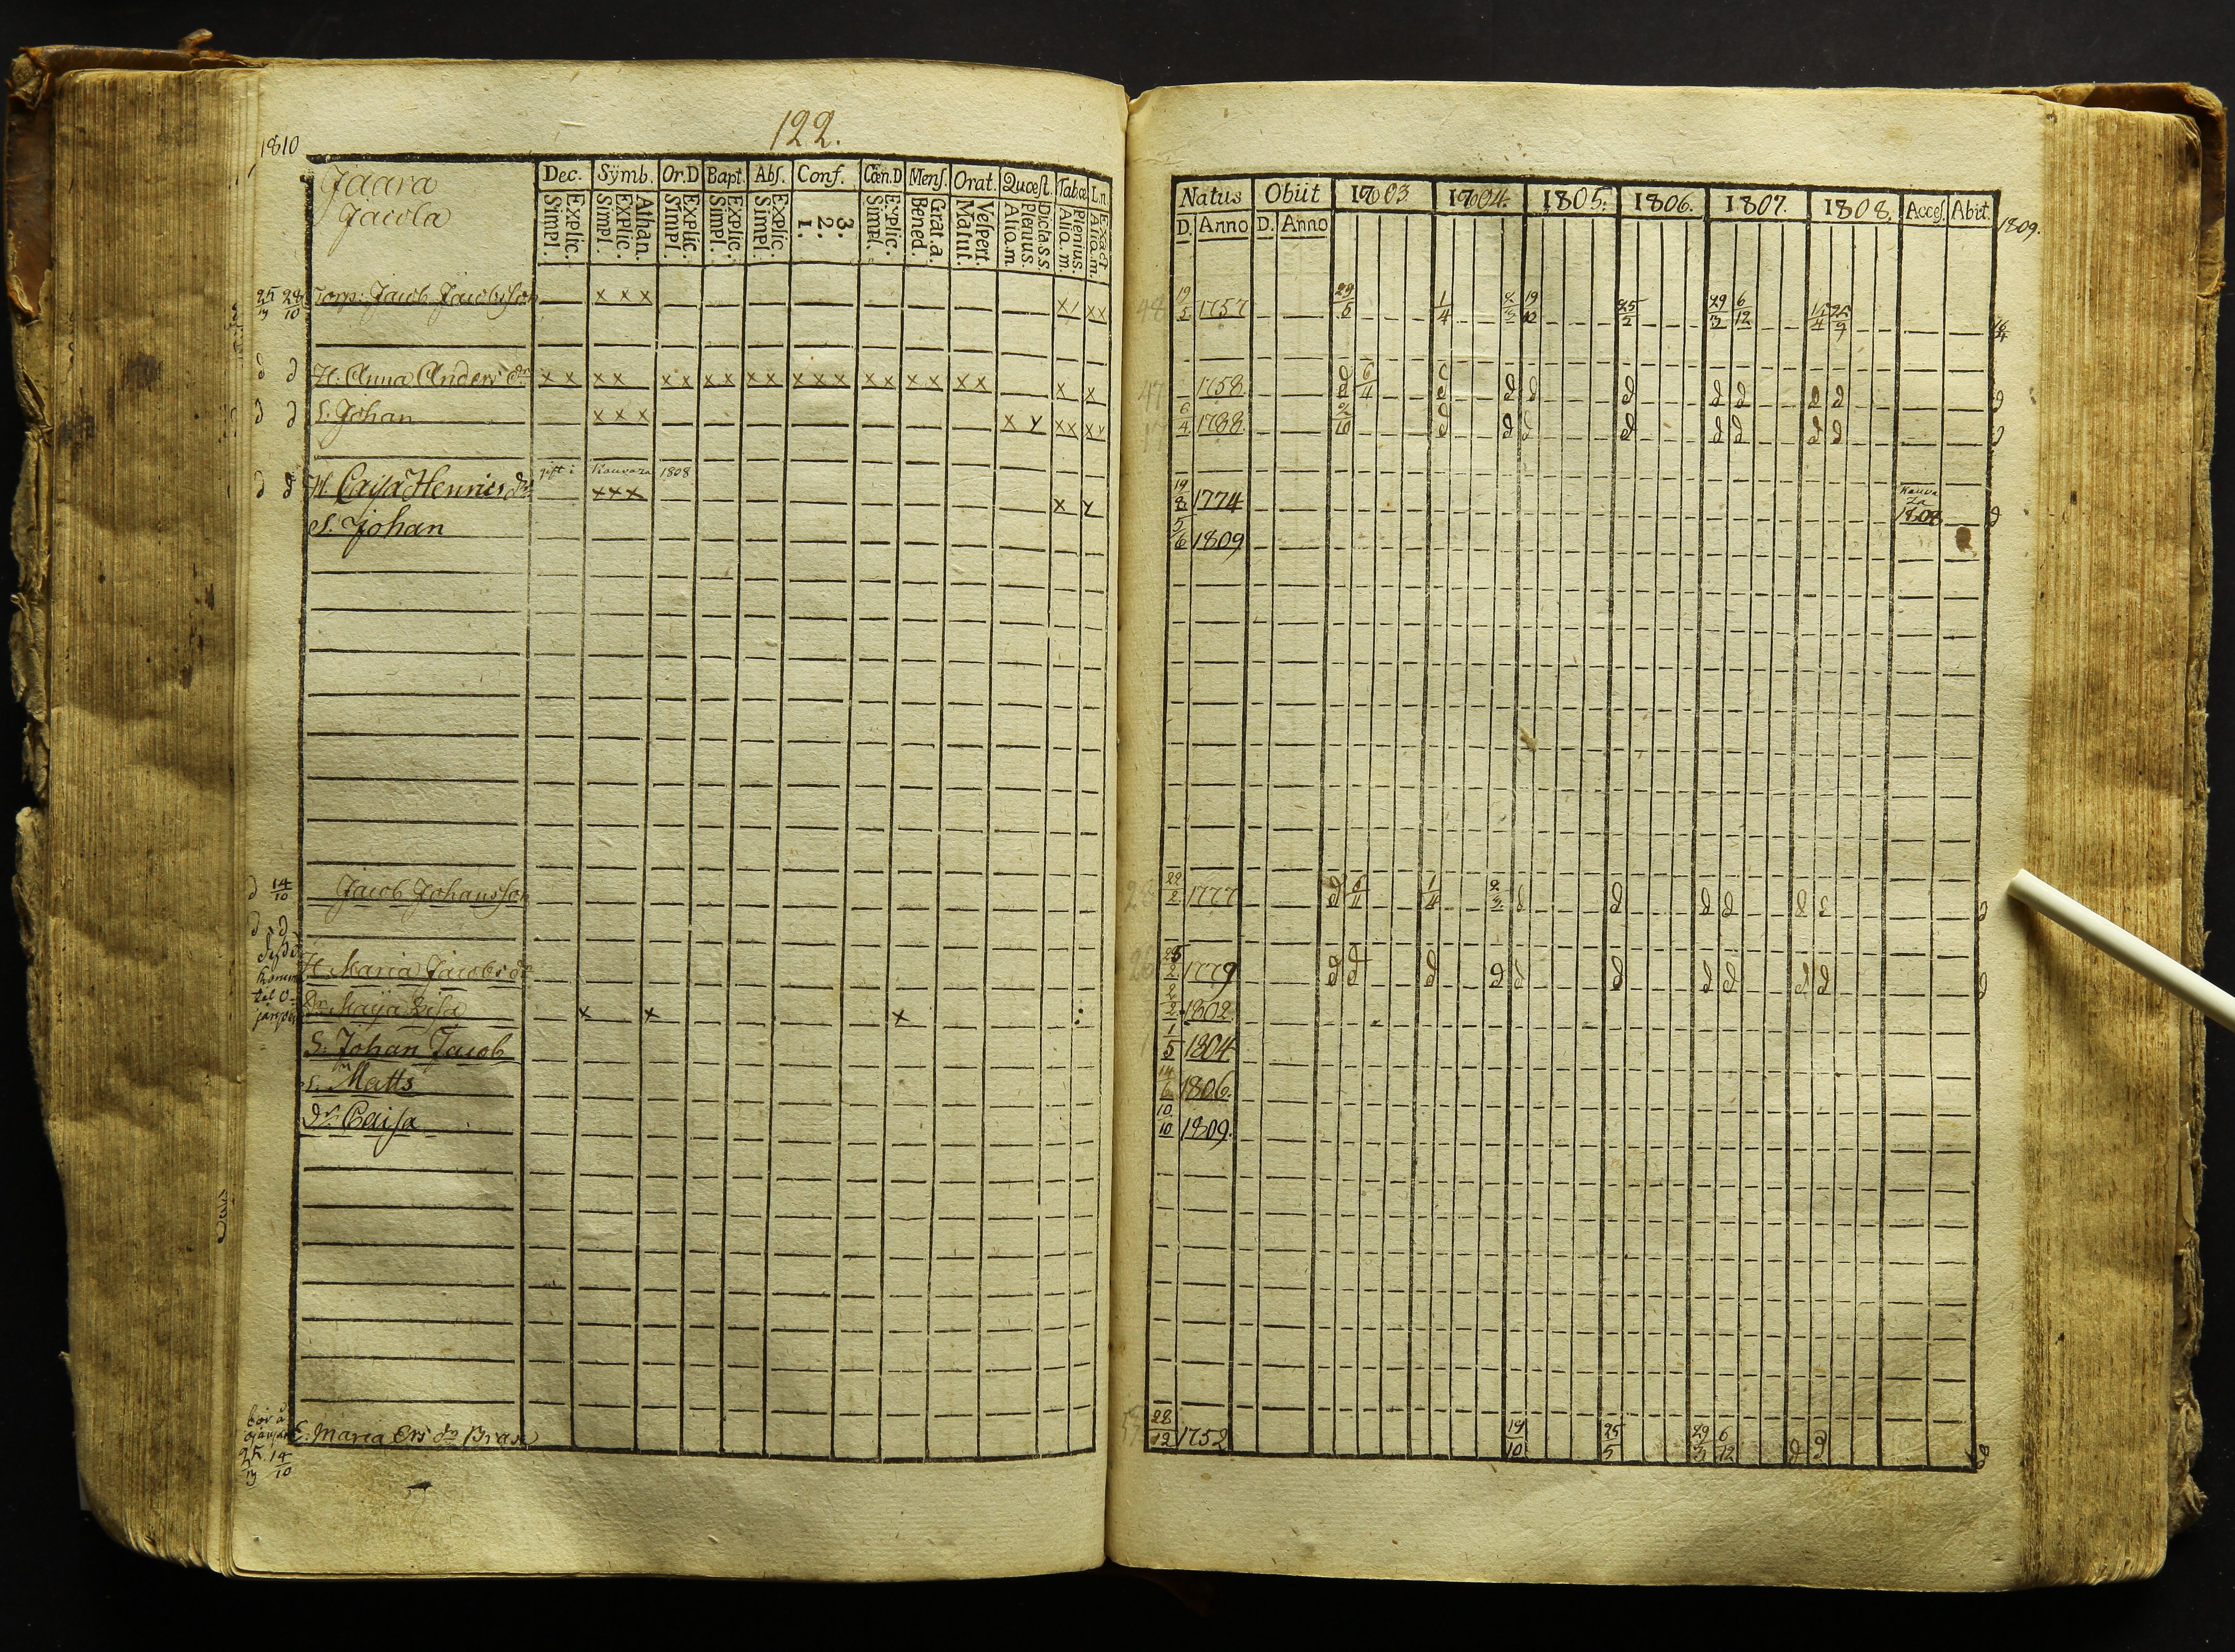 1810
122.
Jaara
Jacola
Dec. Sÿmb. Or.D Bapt. Abs. Conf. Cœn.D Mens. Orat. Quœst. Tabœ L.n.
Explic. Simpl. Athan. Explic. Simpl. Explic. Simpl. Explic. Simpl. Explic. Simpl. 3. 2. 1. Explic. Simpl. Grat.a. Bened. Vespert. Matut. Dicta.s.s. Plenius. Aliq.m. Plenius. Aliq.m. Exact Aliq.m.
Torp: Jacob Jacobsson x x x x x x
H. Anna Anders dr x x x x x x x x x x x x x x x x x x x x x
S. Johan x x x x y x x x y
gift i Kauvaza 1808
H. Caisa Henrics dr x x x x y
S. Johan
14/10 Jacob Johansson
H. Maria Jacobs dr
dr Maija Lisa x x x
S. Johan Jacob
S. Matts
dr. Caisa
E. Maria Ers dr Brase
14/10
Natus Obiit 1803. 1804. 1805. 1806. 1807. 1808. Acces. Abit. 1809.
D. Anno D. Anno
19/5 1757 29/5 1/4 2/3 19/10 25/5 29/3 6/12
47 1758 d 6/4 d d d d d d d d
6/4 1788 2/10 d d d d d d d d d
19/8 1774 Kauva za 1808 d
5/6 1809
22/2 1777 d 1/4 2/3 d d d d d
26 25/2 1779 d d d d d d d d d d d
2/2 1802
1/5 1804
14/6 1806.
10/10 1809.
28/12 1752 19/10 25/5 29/3 6/12 d d d